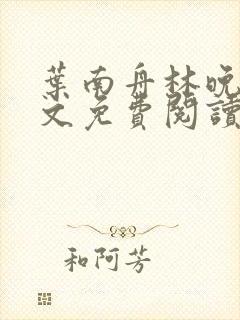 葉南舟林晚
文免費閱讀
和阿芳